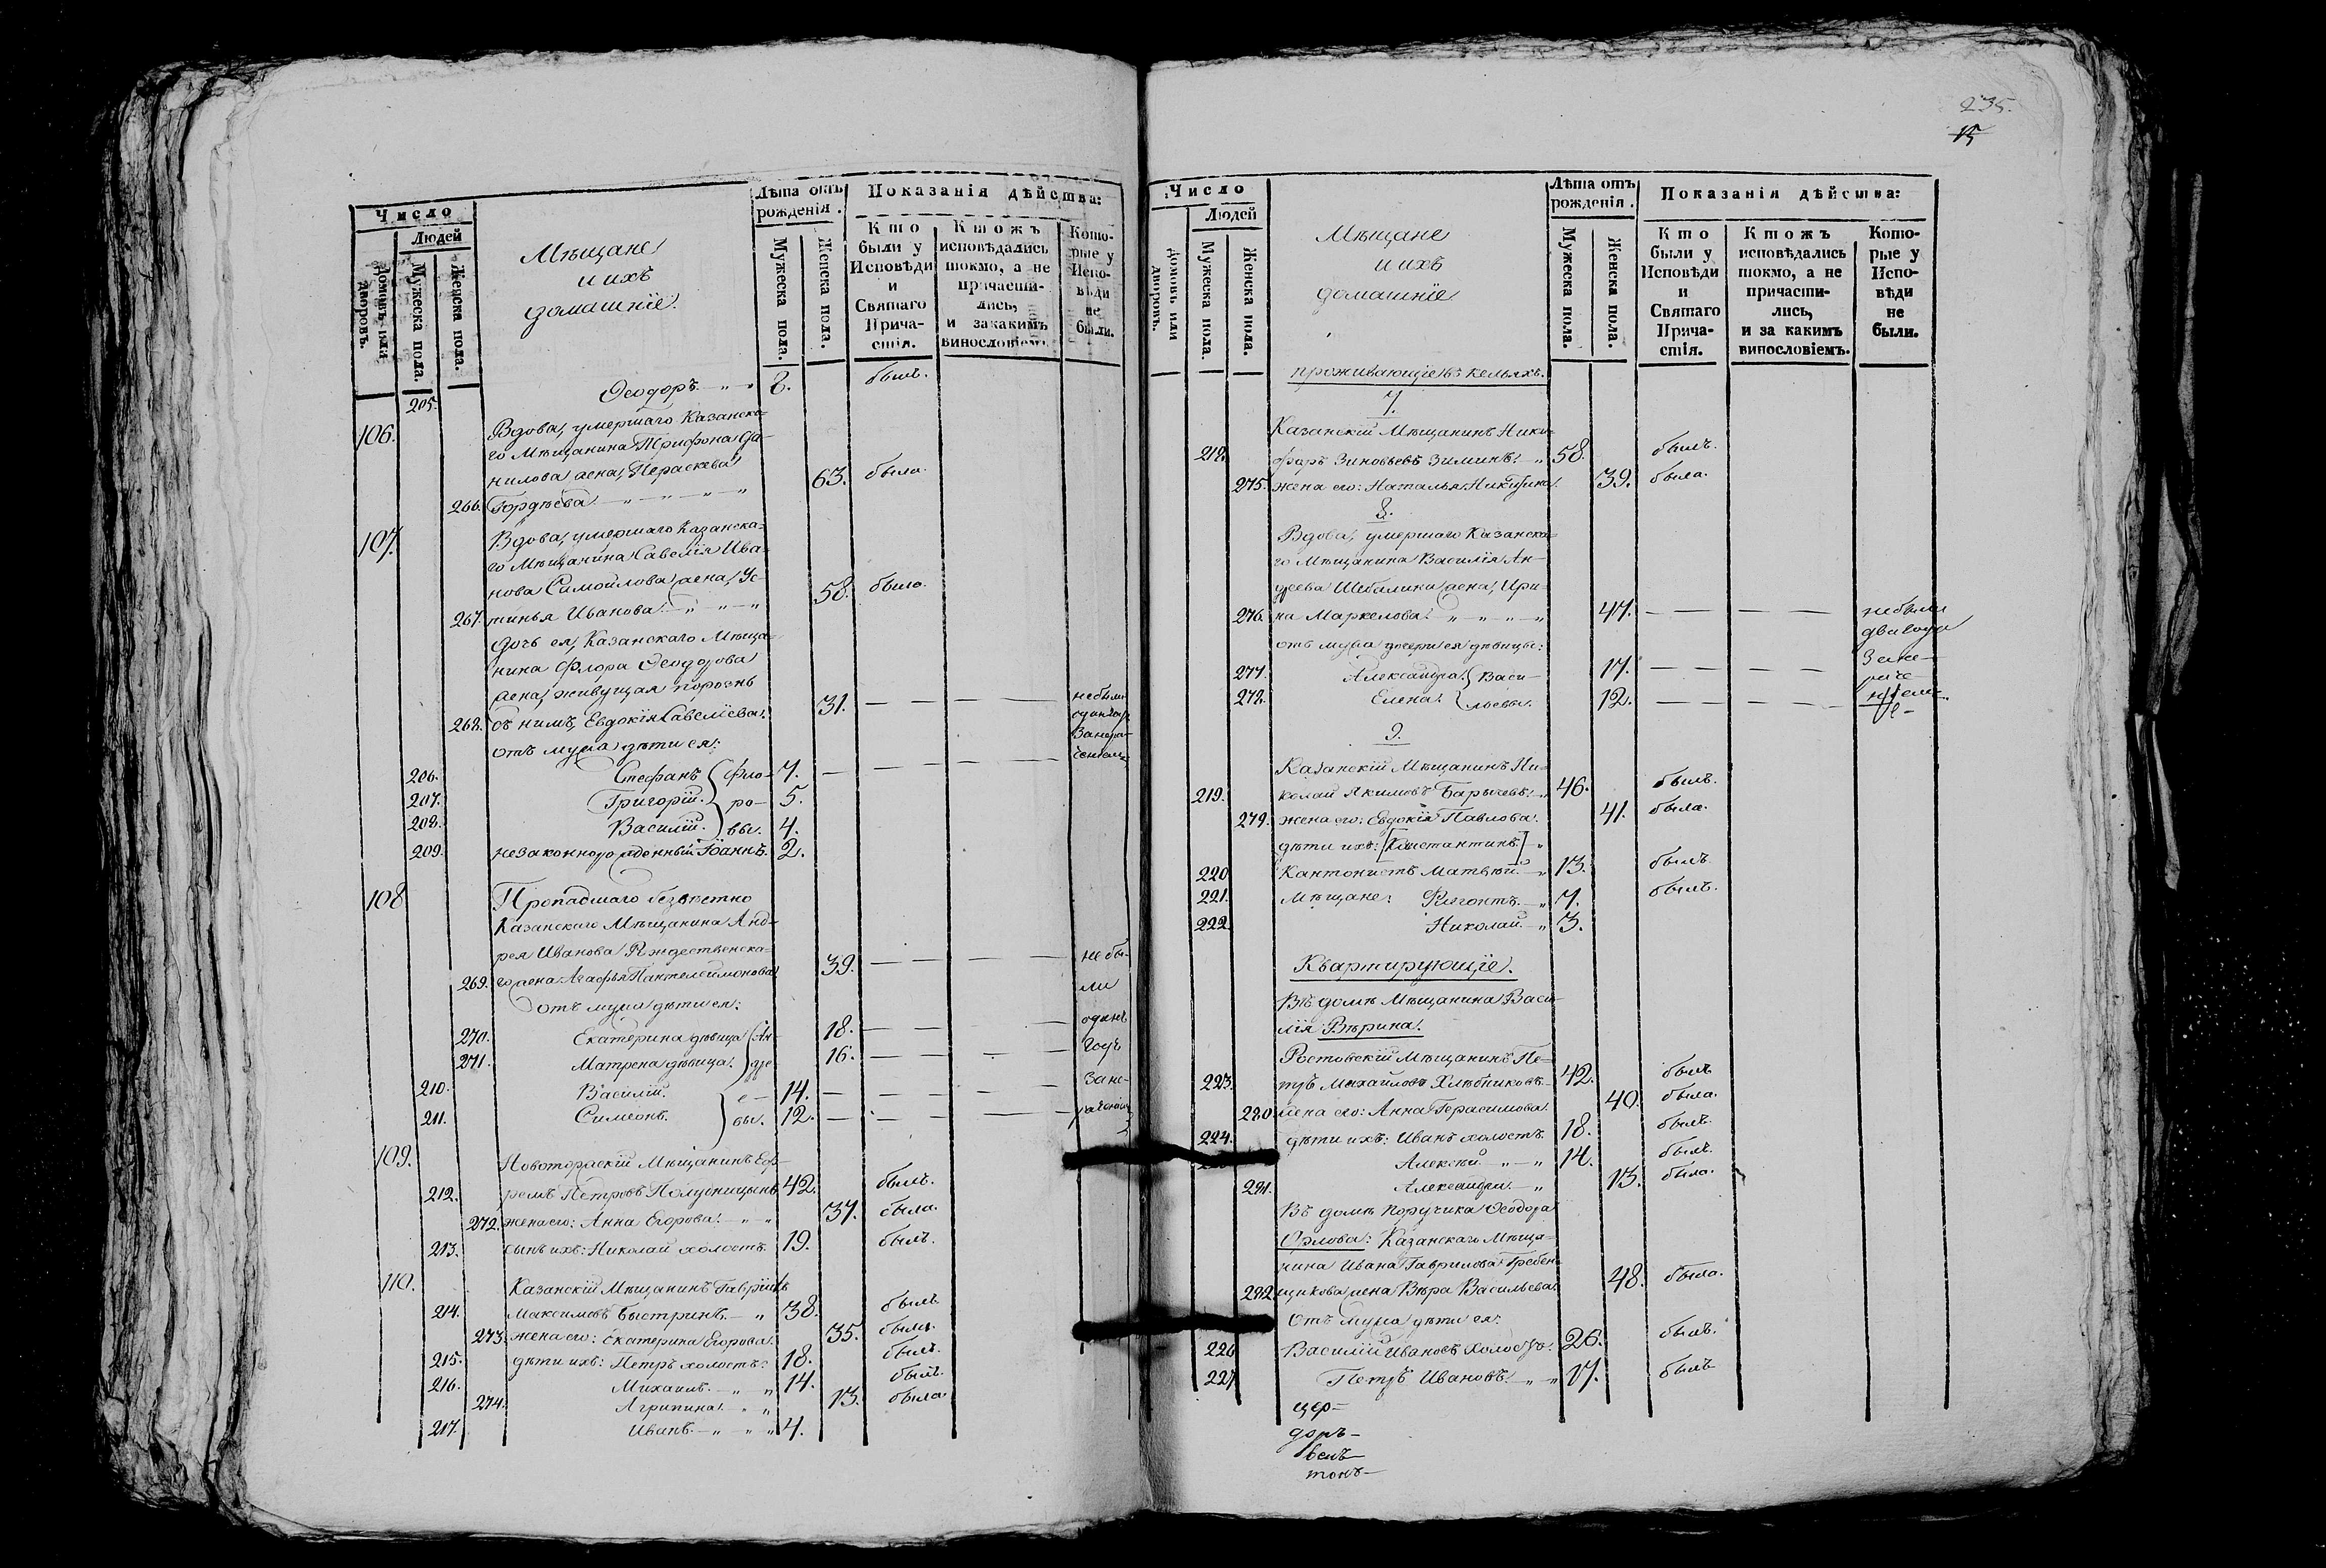 Число
Людей
Домовъ или дворовъ.
Мужеска пола.
Женска пола.
Мѣщане
и ихъ
домашніе.
Лѣта отъ рожденія.
Мужеска пола.
Женска пола.
Показанія дѣйства:
Кто были у Исповѣди и Святаго Причастія.
Ктожъ исповѣдались токмо, а не причастились, и за какимъ винословіемъ.
Которые у Исповѣди не были.
205. Ѳеодоръ. 8. былъ.
106. Вдова, умершаго Казанска-
го Мѣщанина Трифона Да-
нилова жена, Параскева
266. Гордѣева. 63. была.
107. Вдова, умершаго Казанска-
го Мѣщанина Савелія Ива-
нова Самойлова жена, Ус-
267. тинья Иванова. 58. была.
Дочь ея, Казанскаго Мѣща-
нина Флора Ѳеодорова
жена, живущая порознь
268. съ нимъ, Евдокія Савеліева. 31. — — — —
отъ мужа дѣти ея:
206. Стефанъ Фло- 7. — — — —
207. Григорій. ро- 5.
208. Василій. вы. 4.
209. незаконнорожденный Іоаннъ. 2.
108 Пропадшаго безвѣстно
Казанскаго Мѣщанина Анд-
рея Иванова Рждественска-
269. го жена Агафья Пантелеймонова 39. — — — — не бы-
ли
отъ мужа дѣти ея:
270. Екатерина дѣвица Ан- 18. — — — — одинъ
271. Матрена дѣвица. дре- 16. — — — — годъ
210. Василій. е- 14. — — — — За не-
211. Симеонъ. вы. 12. — — — —
109. Новоторжскій Мѣщанинъ Еф-
212. ремъ Петровъ Полубницынъ 42. былъ.
272. жена его: Анна Егорова. 37. была.
213. сынъ ихъ: Николай холостъ. 19. былъ.
110. Казанскій Мѣщанинъ Гавріилъ
214. Максимовъ Быстринъ. 38. былъ
273. жена его: Екатерина Егорова. 35. была.
215. дѣти ихъ: Петръ холостъ. 18. былъ.
216. Михаилъ. 14. былъ.
274. Агрипина. 13. была.
217. Иванъ. 4.
235.
15
Число
Людей
Домовъ или дворовъ.
Мужеска пола.
Женска пола.
Мѣщане
и ихъ
домашніе
Лѣта отъ рожденія.
Мужеска пола.
Женска пола.
Показанія дѣйства:
Кто были у Исповѣди и Святаго Причастія.
Ктожъ исповѣдались токмо, а не причастились, и за какимъ винословіемъ.
Которые у Исповѣди не были.
проживающіе въ кельяхъ.
7.
Казанскій Мѣщанинъ Ники-
218. форъ Зиновьевъ Зиминъ. 58. былъ.
275. жена его: Наталья Никитина. 39. была.
8.
Вдова, умершаго Казанска-
го Мѣщанина Василія Ан-
дреева Шебалина жена, Ири-
276. на Маркелова. 47. — — — — не были
два года
отъ мужа дочери ея дѣвицы:
277. Александра. Васи- 17. — — — — За не-
278. Елена. льевы. 12. — — — —
9.
Казанскій Мѣщанинъ Ни-
219. колай Якимовъ Барычевъ. 46. былъ.
279. жена его: Евдокія Павлова. 41. была.
дѣти ихъ: [Константинъ]
220 Кантонистъ Матвѣй. 13. былъ.
221. Мѣщане: 7. былъ.
222. Николай. 3.
Квартирующіе.
Въ домѣ Мѣщанина Васи-
лія Вѣрина.
Ростовскій Мѣщанинъ Пе-
223. тръ Михайловъ Хлѣбниковъ. 42. былъ
280 жена его: Анна Герасимова. 40. была.
224. дѣти ихъ: Иванъ холостъ. 18. былъ.
Алексѣй. 14. былъ.
281. Александра. 13. была.
Въ домѣ Поручика Ѳеодора
Орлова: Казанскаго Мѣща-
нина Ивана Гаврилова Гребен-
282 щикова жена Вѣра Васильева. 48. была.
отъ мужа дѣти ея:
226 Василій Ивановъ холостъ. 26. былъ.
227 Петръ Ивановъ. 17. былъ
цер-
доръ-
венъ-
тонъ-